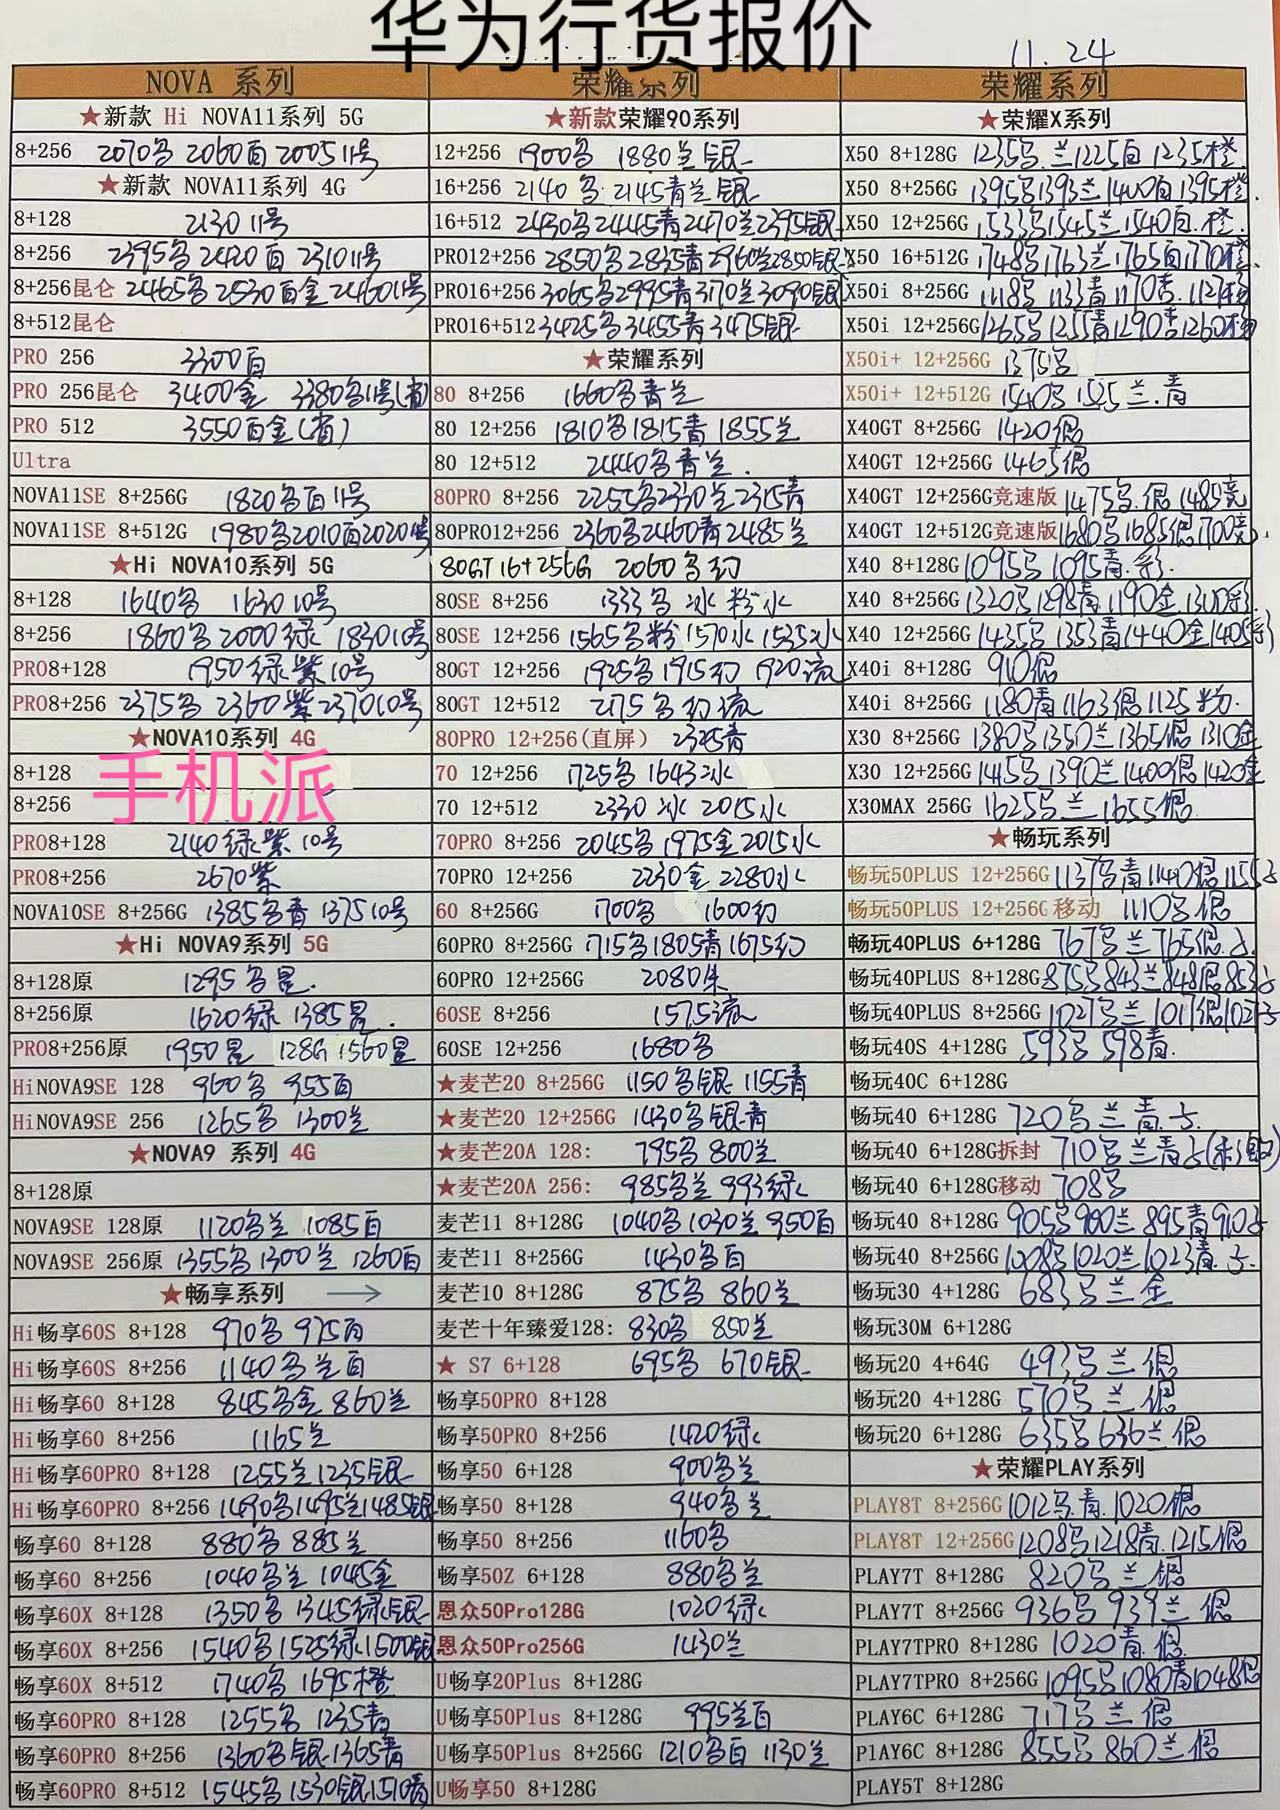 华为行货报价
11.24
NOVA 系列
★新款 Hi NOVA11系列 5G
8+256 2070名 2060百 2005 11号
★新款 NOVA11系列 4G
8+128 2130 11号
8+256 2395名 2420百 2310 11号
8+256昆仑 2465名 2530百金 2460 11号
8+512昆仑
PRO 256 3300百
PRO 256昆仑 3400金 3380名11号(省)
PRO 512 3550百金(省)
Ultra
NOVA11SE 8+256G 1820名百11号
NOVA11SE 8+512G 1980名2010百2020 11号
★Hi NOVA10系列 5G
8+128 1640名 1630 10号
8+256 1860名 2000绿 1830 10号
PRO8+128 1950绿紫10号
PRO8+256 2375名 2360紫2370 10号
★NOVA10系列 4G
手机派
8+128
8+256
PRO8+128 2140绿紫10号
PRO8+256 2670紫
NOVA10SE 8+256G 1385名青1375 10号
★Hi NOVA9系列 5G
8+128原 1295名星.
8+256原 1620绿 1385星.
PRO8+256原 1950星 128G 1560星
HiNOVA9SE 128 960名 955百
HiNOVA9SE 256 1265名 1300兰
★NOVA9 系列 4G
8+128原
NOVA9SE 128原 1120名兰 1085百
NOVA9SE 256原 1355名1300兰 1260百
★畅享系列 →
Hi畅享60S 8+128 970名 975百
Hi畅享60S 8+256 1140名兰百
Hi畅享60 8+128 845名金 860兰
Hi畅享60 8+256 1165兰
Hi畅享60PRO 8+128 1255兰1235银
Hi畅享60PRO 8+256 1490名1495兰1485银
畅享60 8+128 880名 885兰
畅享60 8+256 1040名兰 1045金
畅享60X 8+128 1350名 1345绿银
畅享60X 8+256 1540名1525绿1500银
畅享60X 8+512 1740名 1695橙
畅享60PRO 8+128 1255名 1235青
畅享60PRO 8+256 1360名银1365青
畅享60PRO 8+512 1545名1530银1510青
荣耀系列
★新款荣耀90系列
12+256 1900名 1880兰银
16+256 2140名 2145青兰银
16+512 2430名2445青2470兰2395银
PRO12+256 2850名2835青2960兰2850银
PRO16+256 3065名2995青3170兰3090银
PRO16+512 3425名3455青3475银
★荣耀系列
80 8+256 1660名青兰
80 12+256 1810名1815青1855兰
80 12+512 2440名青兰.
80PRO 8+256 2255名2330兰2315青
80PRO12+256 2360名2460青2485兰
80GT 16+256G 2060名幻
80SE 8+256 1333名冰粉水
80SE 12+256 1565名粉1570水1535冰
80GT 12+256 1925名1915幻 1920流
80GT 12+512 2175名幻流
80PRO 12+256(直屏) 2325青
70 12+256 1725名1643冰
70 12+512 2330冰 2015水
70PRO 8+256 2045名1975金2015水
70PRO 12+256 2230金2280水
60 8+256G 1700名 1600幻
60PRO 8+256G 1715名1805青1675幻
60PRO 12+256G 2080朱
60SE 8+256 1575流
60SE 12+256 1680名
★麦芒20 8+256G 1150名银1155青
★麦芒20 12+256G 1430名银青
★麦芒20A 128: 795名800兰
★麦芒20A 256: 985名兰993绿
麦芒11 8+128G 1040名1030兰950百
麦芒11 8+256G 1430名百
麦芒10 8+128G 875名 860兰
麦芒十年臻爱128: 830名 850兰
★ S7 6+128 695名 670银
畅享50PRO 8+128
畅享50PRO 8+256 1420绿
畅享50 6+128 900名兰
畅享50 8+128 940名兰
畅享50 8+256 1160名
畅享50Z 6+128 880名兰
恩众50Pro128G 1020绿
恩众50Pro256G 1430兰
U畅享20Plus 8+128G
U畅享50Plus 8+128G 995兰百
U畅享50Plus 8+256G 1210名百 1130兰
U畅享50 8+128G
荣耀系列
★荣耀X系列
X50 8+128G 1235名.兰1225百1235橙
X50 8+256G 1395名1393兰1400百1395橙
X50 12+256G 1533名1545兰1540百.橙.
X50 16+512G 1748名1763兰1765百1770橙
X50i 8+256G 1118名1133青1170杏.1121粉
X50i 12+256G 1265名1255青1290杏1260粉
X50i+ 12+256G 1375名
X50i+ 12+512G 1540名1525兰.青
X40GT 8+256G 1420银
X40GT 12+256G 1465银
X40GT 12+256G竞速版 1475名.银1485竞
X40GT 12+512G竞速版 1680名1685银1700竞
X40 8+128G 1095名1095青.彩.
X40 8+256G 1320名1298青1190金1300彩
X40 12+256G 1435名1353青1440金1405彩
X40i 8+128G 910银
X40i 8+256G 1180青1163银1125粉.
X30 8+256G 1380名1350兰1365银1310金
X30 12+256G 1415名1390兰1400银1420金
X30MAX 256G 1625名兰1655银
★畅玩系列
畅玩50PLUS 12+256G 1137名青1140银1155子
畅玩50PLUS 12+256G移动 1110名银
畅玩40PLUS 6+128G 767名兰765银.子
畅玩40PLUS 8+128G 875名843兰848银853子
畅玩40PLUS 8+256G 1027名兰1017银1027子
畅玩40S 4+128G 593名598青.
畅玩40C 6+128G
畅玩40 6+128G 720名兰青.子.
畅玩40 6+128G拆封 710名兰青子
畅玩40 6+128G移动 708名
畅玩40 8+128G 905名900兰895青910子
畅玩40 8+256G 1008名1020兰1023青.子.
畅玩30 4+128G 683名兰金
畅玩30M 6+128G
畅玩20 4+64G 493名兰银
畅玩20 4+128G 570名兰银
畅玩20 6+128G 635名636兰银
★荣耀PLAY系列
PLAY8T 8+256G 1012名.青.1020银
PLAY8T 12+256G 1208名1218青.1215银
PLAY7T 8+128G 820名兰银
PLAY7T 8+256G 936名939兰银
PLAY7TPRO 8+128G 1020青.银
PLAY7TPRO 8+256G 1095名1080青1048银
PLAY6C 6+128G 717名兰银
PlAY6C 8+128G 855名860兰银
PLAY5T 8+128G